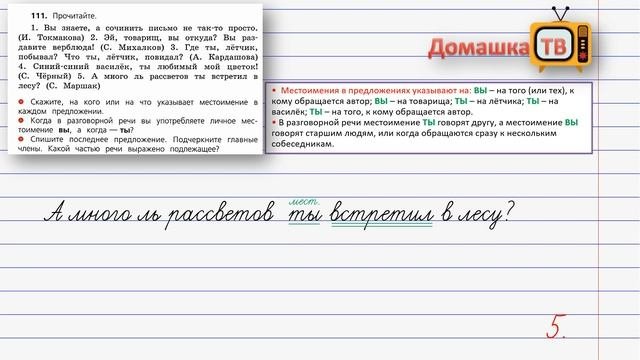 111. Прочитайте.
1. Вы знаете, а сочинить письмо не так-то просто.
(И. Токмакова) 2. Эй, товарищ, вы откуда? Вы раз-
давите верблюда! (С. Михалков) 3. Где ты, лётчик,
побывал? Что ты, лётчик, повидал? (А. Кардашова)
4. Синий-синий василёк, ты любимый мой цветок!
(С. Чёрный) 5. А много ль рассветов ты встретил в
лесу? (С. Маршак)
Скажите, на кого или на что указывает местоимение в
каждом предложении.
Когда в разговорной речи вы употребляете личное мес-
тоимение вы, а когда — ты?
Спишите последнее предложение. Подчеркните главные
члены. Какой частью речи выражено подлежащее?
Домашка ТВ
• Местоимения в предложениях указывают на: ВЫ – на того (или тех), к
кому обращается автор; ВЫ – на товарища; ТЫ – на лётчика; ТЫ – на
василёк; ТЫ – на того, к кому обращается автор.
• В разговорной речи местоимение ТЫ говорят другу, а местоимение ВЫ
говорят старшим людям, или когда обращаются сразу к нескольким
собеседникам.
мест.
А много ль рассветов ты встретил в лесу?
5.